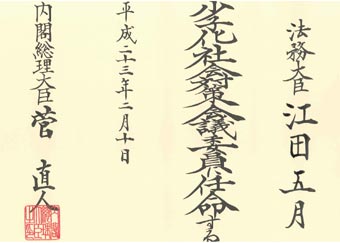 法務大臣 江田五月
少子化社会対策会議委員に任命する
平成二十三年二月十日
内閣総理大臣 菅 直人